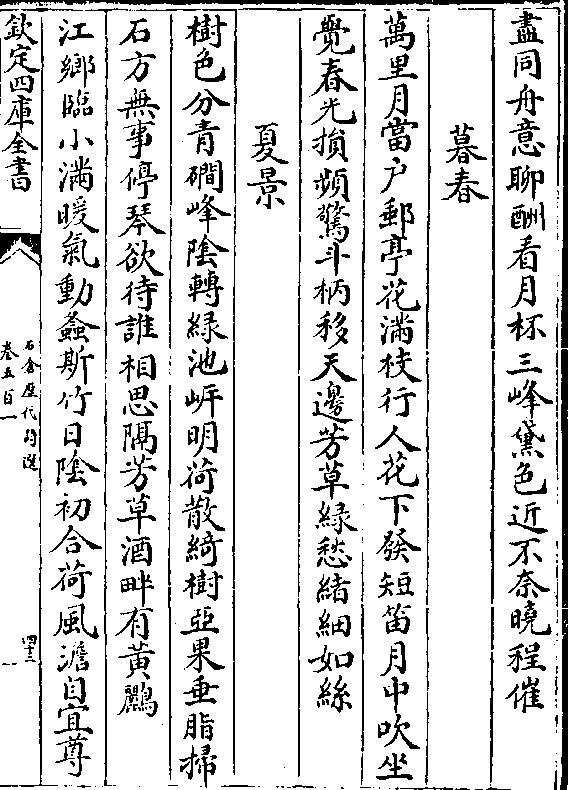 盡同舟意聊酬看月杯三峰黛色近不奈曉程催
暮春
萬里月當户郵亭花滿枝行人花下發短笛月中吹坐
覺春光損頻驚斗柄移天邊芳草緑愁緒細如絲
夏景
樹色分青磵峰陰轉緑池岼明荷散綺樹亞果垂脂掃
石方無事停琴欲待誰相思隔芳草酒畔有黃鸝
江鄉臨小滿暖氣動螽斯竹日陰初合荷風澹自宜尊
欽定四庫全書
石倉歷代詩選
卷五百一
四十三